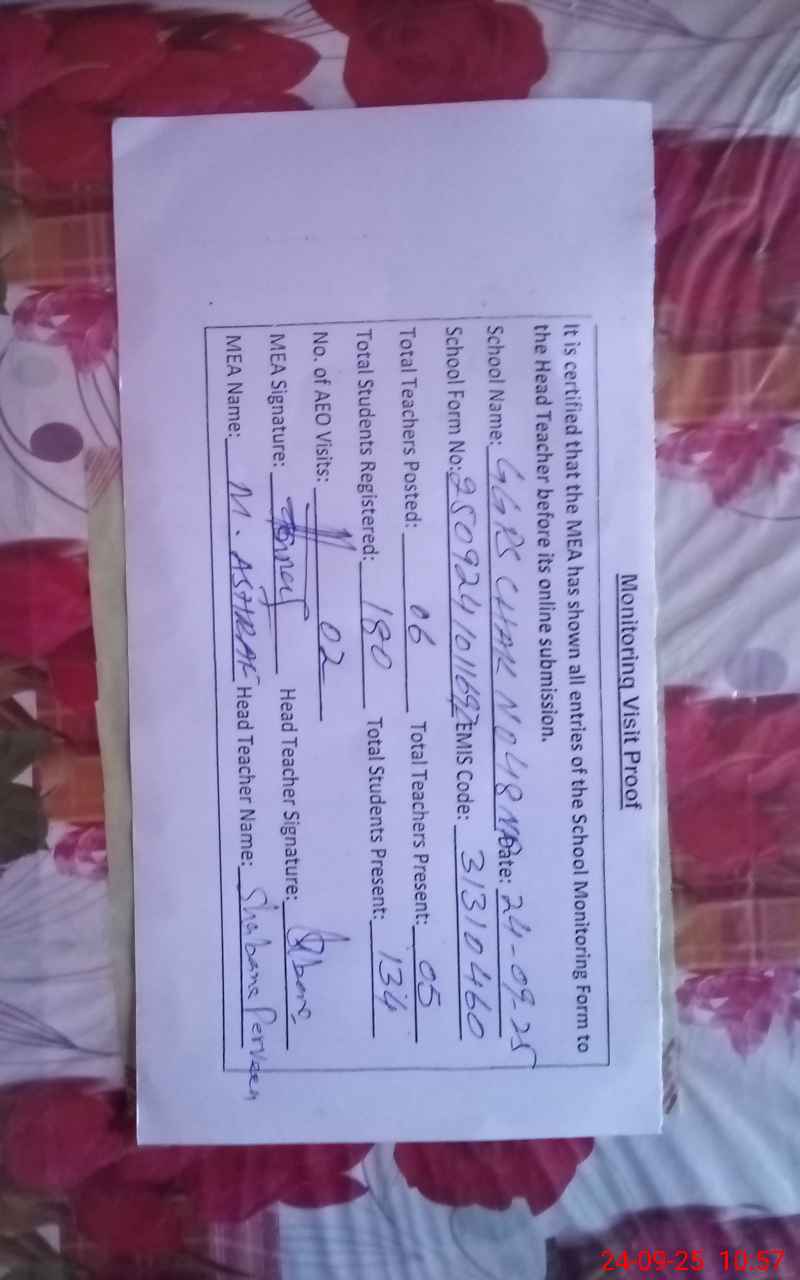 Monitoring Visit Proof
It is certified that the MEA has shown all entries of the School Monitoring Form to
the Head Teacher before its online submission.
School Name: GGPS CHAK NO 48 NP Date: 24-09-25
School Form No: 250924101169 EMIS Code: 31310460
Total Teachers Posted: 06 Total Teachers Present: 05
Total Students Registered: 180 Total Students Present: 134
No. of AEO Visits: 02
MEA Signature: Head Teacher Signature:
MEA Name: M. ASHRAF Head Teacher Name: Shabana Perveen
24-09-25 10:57